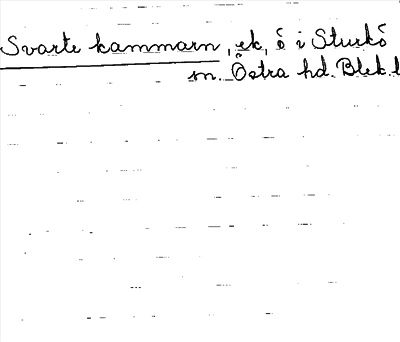 Svarte kammarn, ek, ö i Sturkö
sn. Östra hd. Blek. l